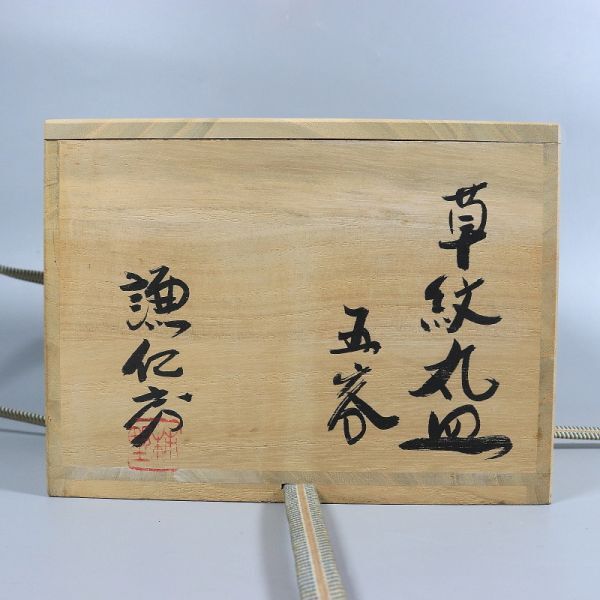 草紋丸皿
五客
謙仁彦